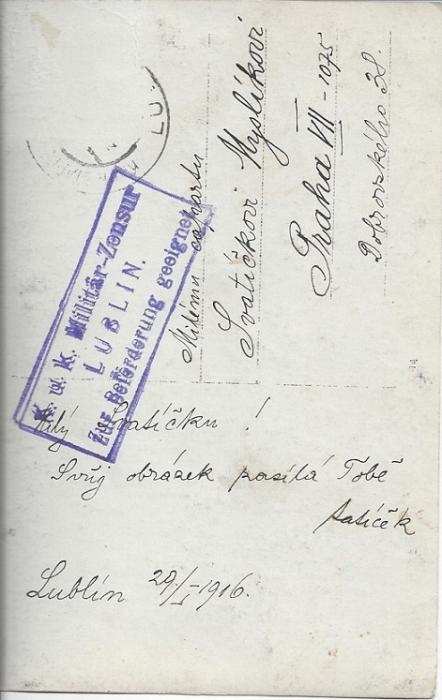 LU
K. u. k. Militär-Zensur
LUBLIN.
Zur Beförderung geeignet
Milému caparlu
Svatíčkovi Myslíkovi
Praha VII - 1075
Dobrovského 38.
Milý Svatíčku!
Svůj obrázek posílá Tobě
tatíček
Lublín 29/I 1916.